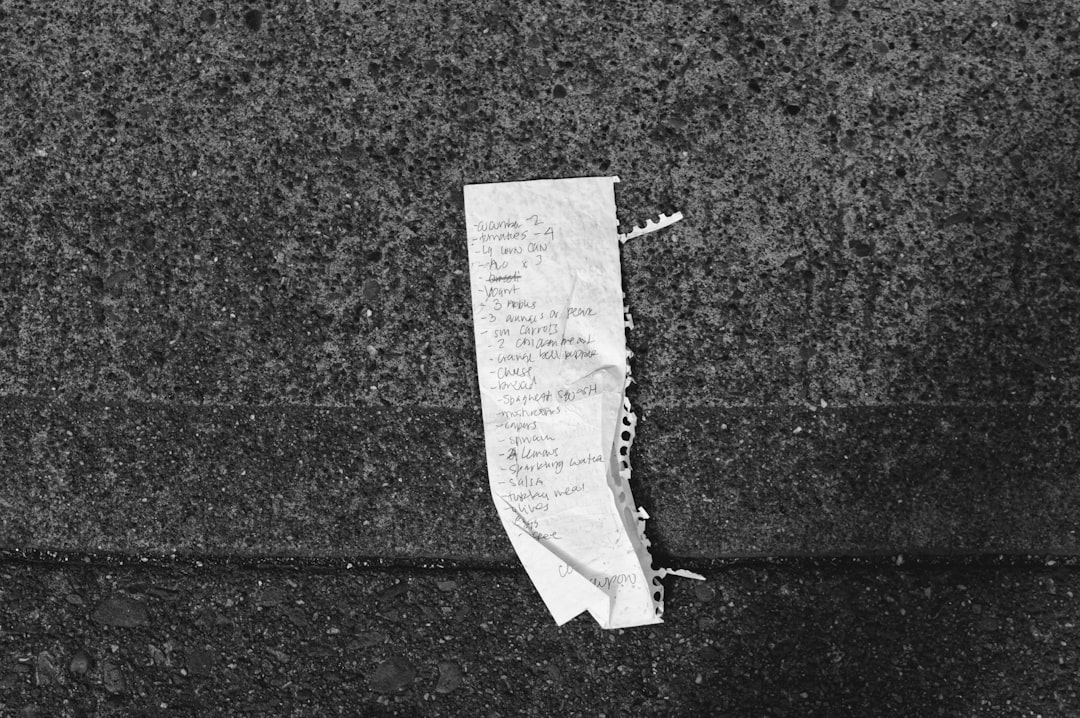 - cucumber 2
- tomatoes - 4
- Lg corn can
- Avo x 3
- broccoli
- Yogurt
- 3 apples
- 3 oranges or pears
- sm carrots
- 2 chicken breast
- orange bell pepper
- Cheese
- bread
- Spaghetti squash
- mushrooms
- capers
- spinach
- 2 Lemons
- Sparkling water
- salsa
- turkey meat
- olives
- eggs